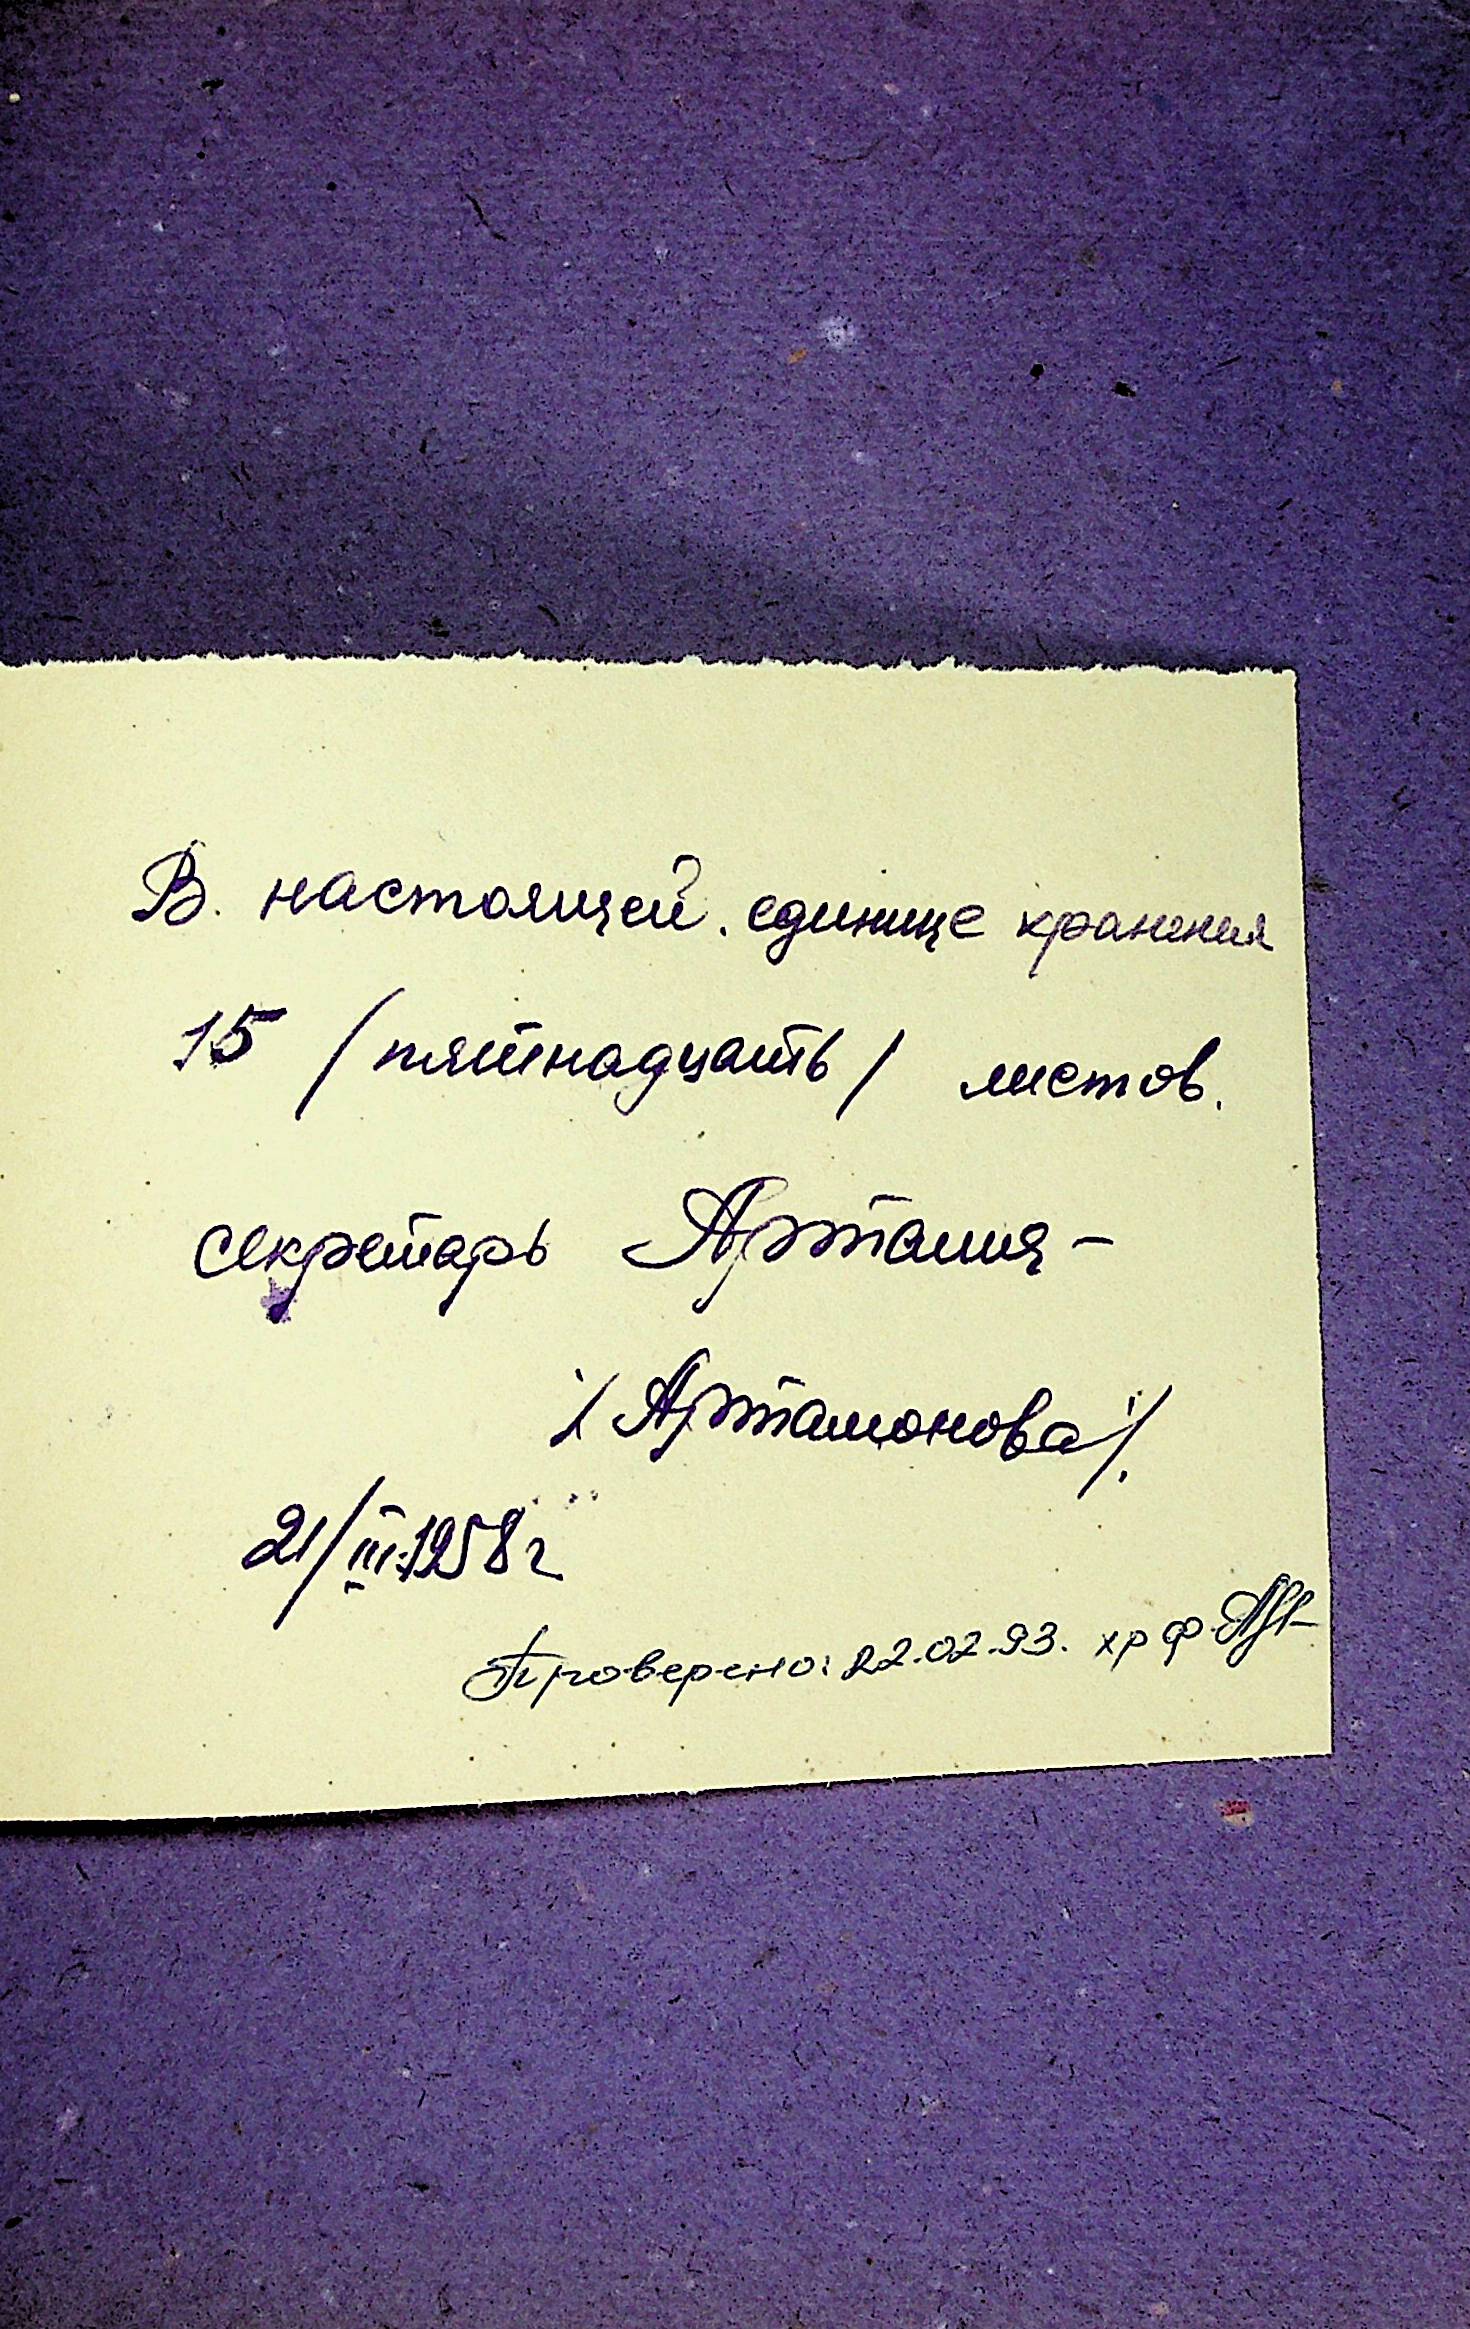 В настоящей единице хранения
15 /пятнадцать/ листов.
секретарь
/Артамонова/.
21/III-1958 г
Проверено: 22.02.93. хр ф.